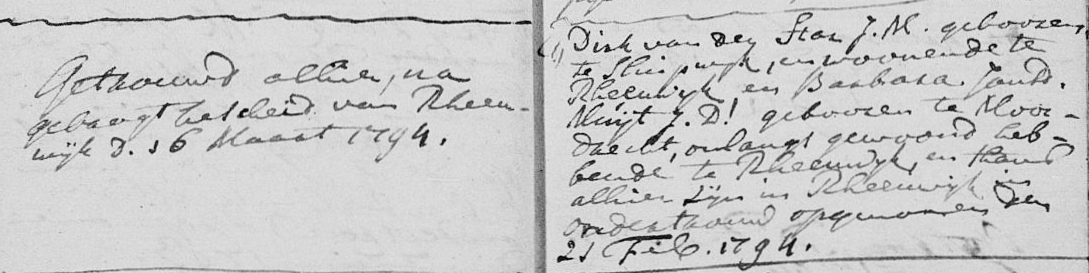 Getrouwd alhier, na
gebragt bescheid van Rheen-
wijk d. 16 Maart 1794.
Dirk van der Star J.M. gebooren
te Sluipwijk, en woonende te
Rheenwijk en Barbara Jansd.
J.D. gebooren te Moor-
drecht, onlangs gewoond heb-
bende te Rheenwijk, en thans
alhier zijn in Rheenwijk in
ondertrouw opgenomen den
21 Feb. 1794.